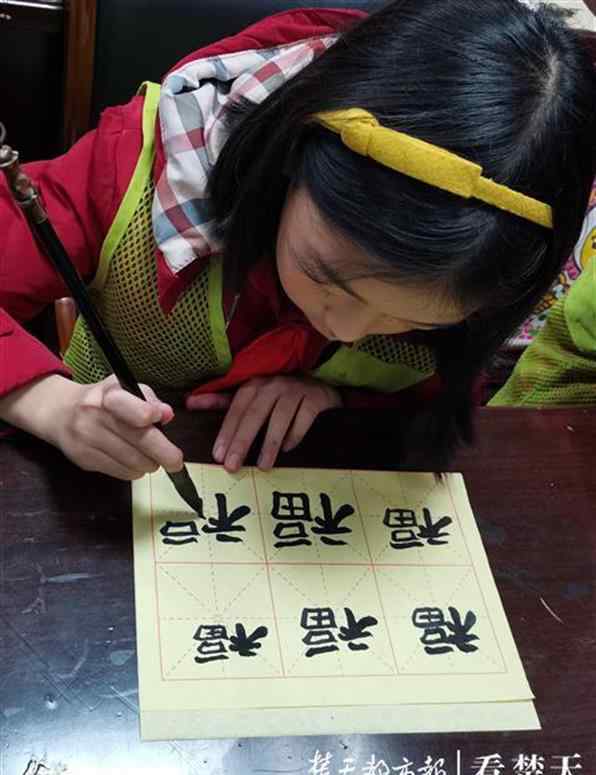 福 福 福
福 福
楚天都市报 | 看楚天